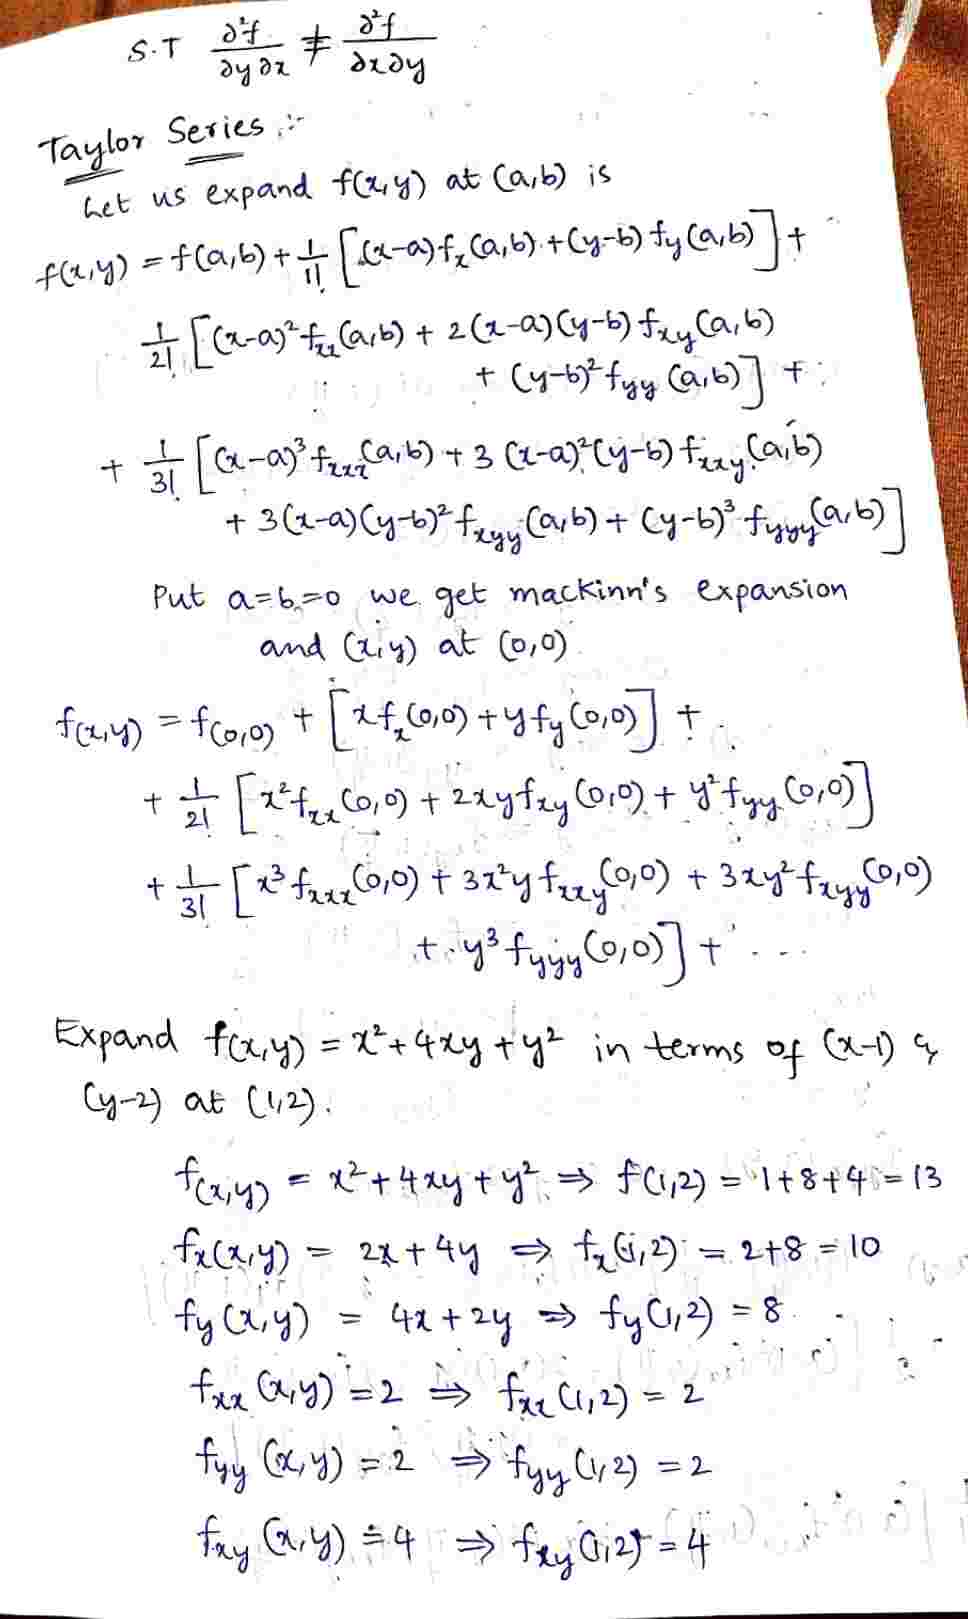 S.T ∂²f/∂y∂x ≠ ∂²f/∂x∂y
Taylor Series :-
Let us expand f(x,y) at (a,b) is
f(x,y) = f(a,b) + 1/1! [(x-a) fx(a,b) + (y-b) fy(a,b)] +
1/2! [(x-a)² fxx(a,b) + 2(x-a)(y-b) fxy(a,b)
+ (y-b)² fyy(a,b)] +
+ 1/3! [(x-a)³ fxxx(a,b) + 3(x-a)²(y-b) fxxy(a,b)
+ 3(x-a)(y-b)² fxyy(a,b) + (y-b)³ fyyy(a,b)]
Put a=b=0 we get mackinn's expansion
and (x,y) at (0,0)
f(x,y) = f(0,0) + [x fx(0,0) + y fy(0,0)] +
+ 1/2! [x² fxx(0,0) + 2xy fxy(0,0) + y² fyy(0,0)]
+ 1/3! [x³ fxxx(0,0) + 3x²y fxxy(0,0) + 3xy² fxyy(0,0)
+ y³ fyyy(0,0)] + ...
Expand f(x,y) = x² + 4xy + y² in terms of (x-1) &
(y-2) at (1,2).
f(x,y) = x² + 4xy + y² ⇒ f(1,2) = 1+8+4 = 13
fx(x,y) = 2x + 4y ⇒ fx(1,2) = 2+8 = 10
fy(x,y) = 4x + 2y ⇒ fy(1,2) = 8
fxx(x,y) = 2 ⇒ fxx(1,2) = 2
fyy(x,y) = 2 ⇒ fyy(1,2) = 2
fxy(x,y) = 4 ⇒ fxy(1,2) = 4